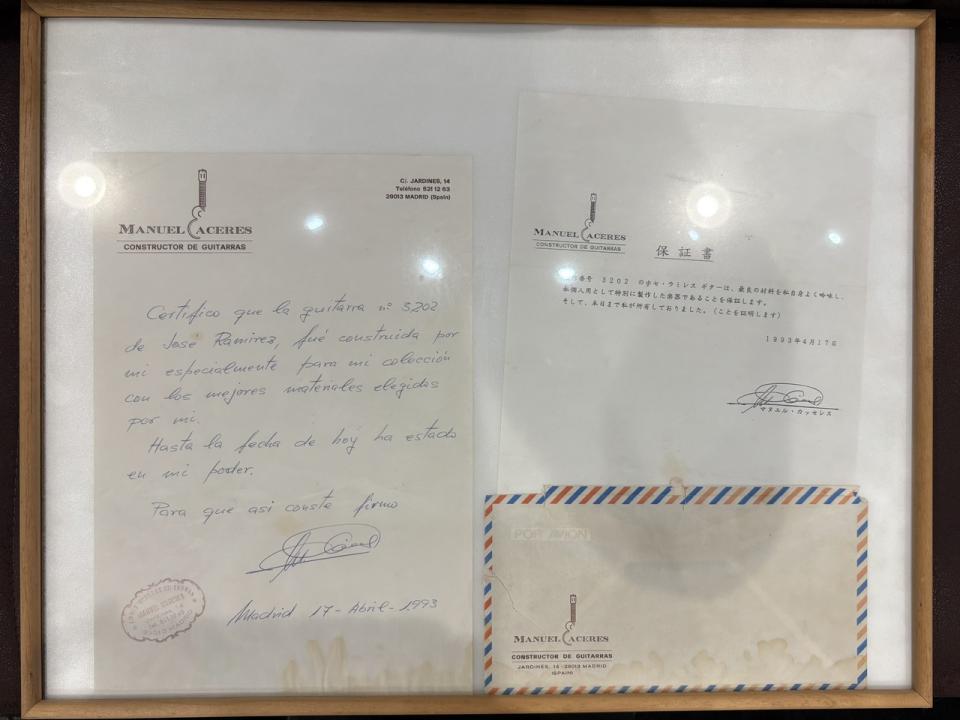 MANUEL CACERES
CONSTRUCTOR DE GUITARRAS
C/. JARDINES, 14
Teléfono 521 12 63
28013 MADRID (Spain)
Certifico que la guitarra nº 3202
de Jose Ramirez, fué construida por
mi especialmente para mi colección
con los mejores materiales elegidos
por mi.
Hasta la fecha de hoy ha estado
en mi poder.
Para que asi conste firmo
Madrid 17-Abril-1993
MANUEL CACERES
CONSTRUCTOR DE GUITARRAS
保証書
番号 3202 のホセ・ラミレス ギターは、最良の材料を私自身よく吟味し、
私個人用として特別に製作した楽器であることを保証します。
そして、本日まで私が所有しておりました。(ことを証明します)
1993年4月17日
マヌエル・カッセレス
POR AVION
MANUEL CACERES
CONSTRUCTOR DE GUITARRAS
JARDINES, 14 - 28013 MADRID
(SPAIN)